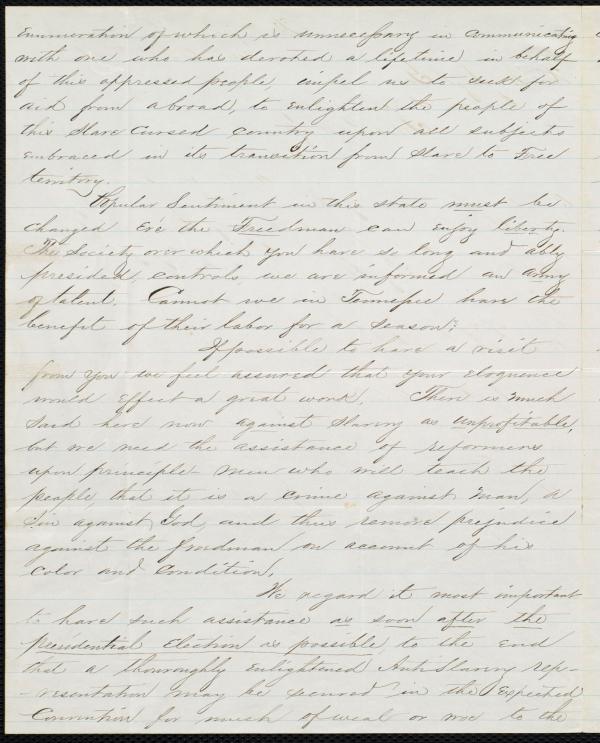 enumeration of which is unnecessary in communicating
with one who has devoted a lifetime in behalf
of this oppressed people, impel us to seek for
aid from abroad, to enlighten the people of
this Slave Cursed country upon all subjects
embraced in its transition from Slave to Free
territory.
Popular Sentiment in this state must be
changed ere the Freedman can enjoy liberty.
The Society over which you have so long and ably
presided, controls we are informed an army
of talent. Cannot we in Tennessee have the
benefit of their labor for a season?
If possible to have a visit
from you we feel assured that your eloquence
would effect a great work. There is much
said here now against Slavery as unprofitable,
but we need the assistance of reformers
upon principle men who will teach the
people, that it is a crime against man, a
Sin against God, and thus remove prejudice
against the freedman on account of his
color and condition.
We regard it most important
to have such assistance as soon after the
presidential Election as possible, to the end
that a thouroughly enlightened Anti Slavery rep-
-resentation may be secured in the Expected
Convention for much of weal or woe to the